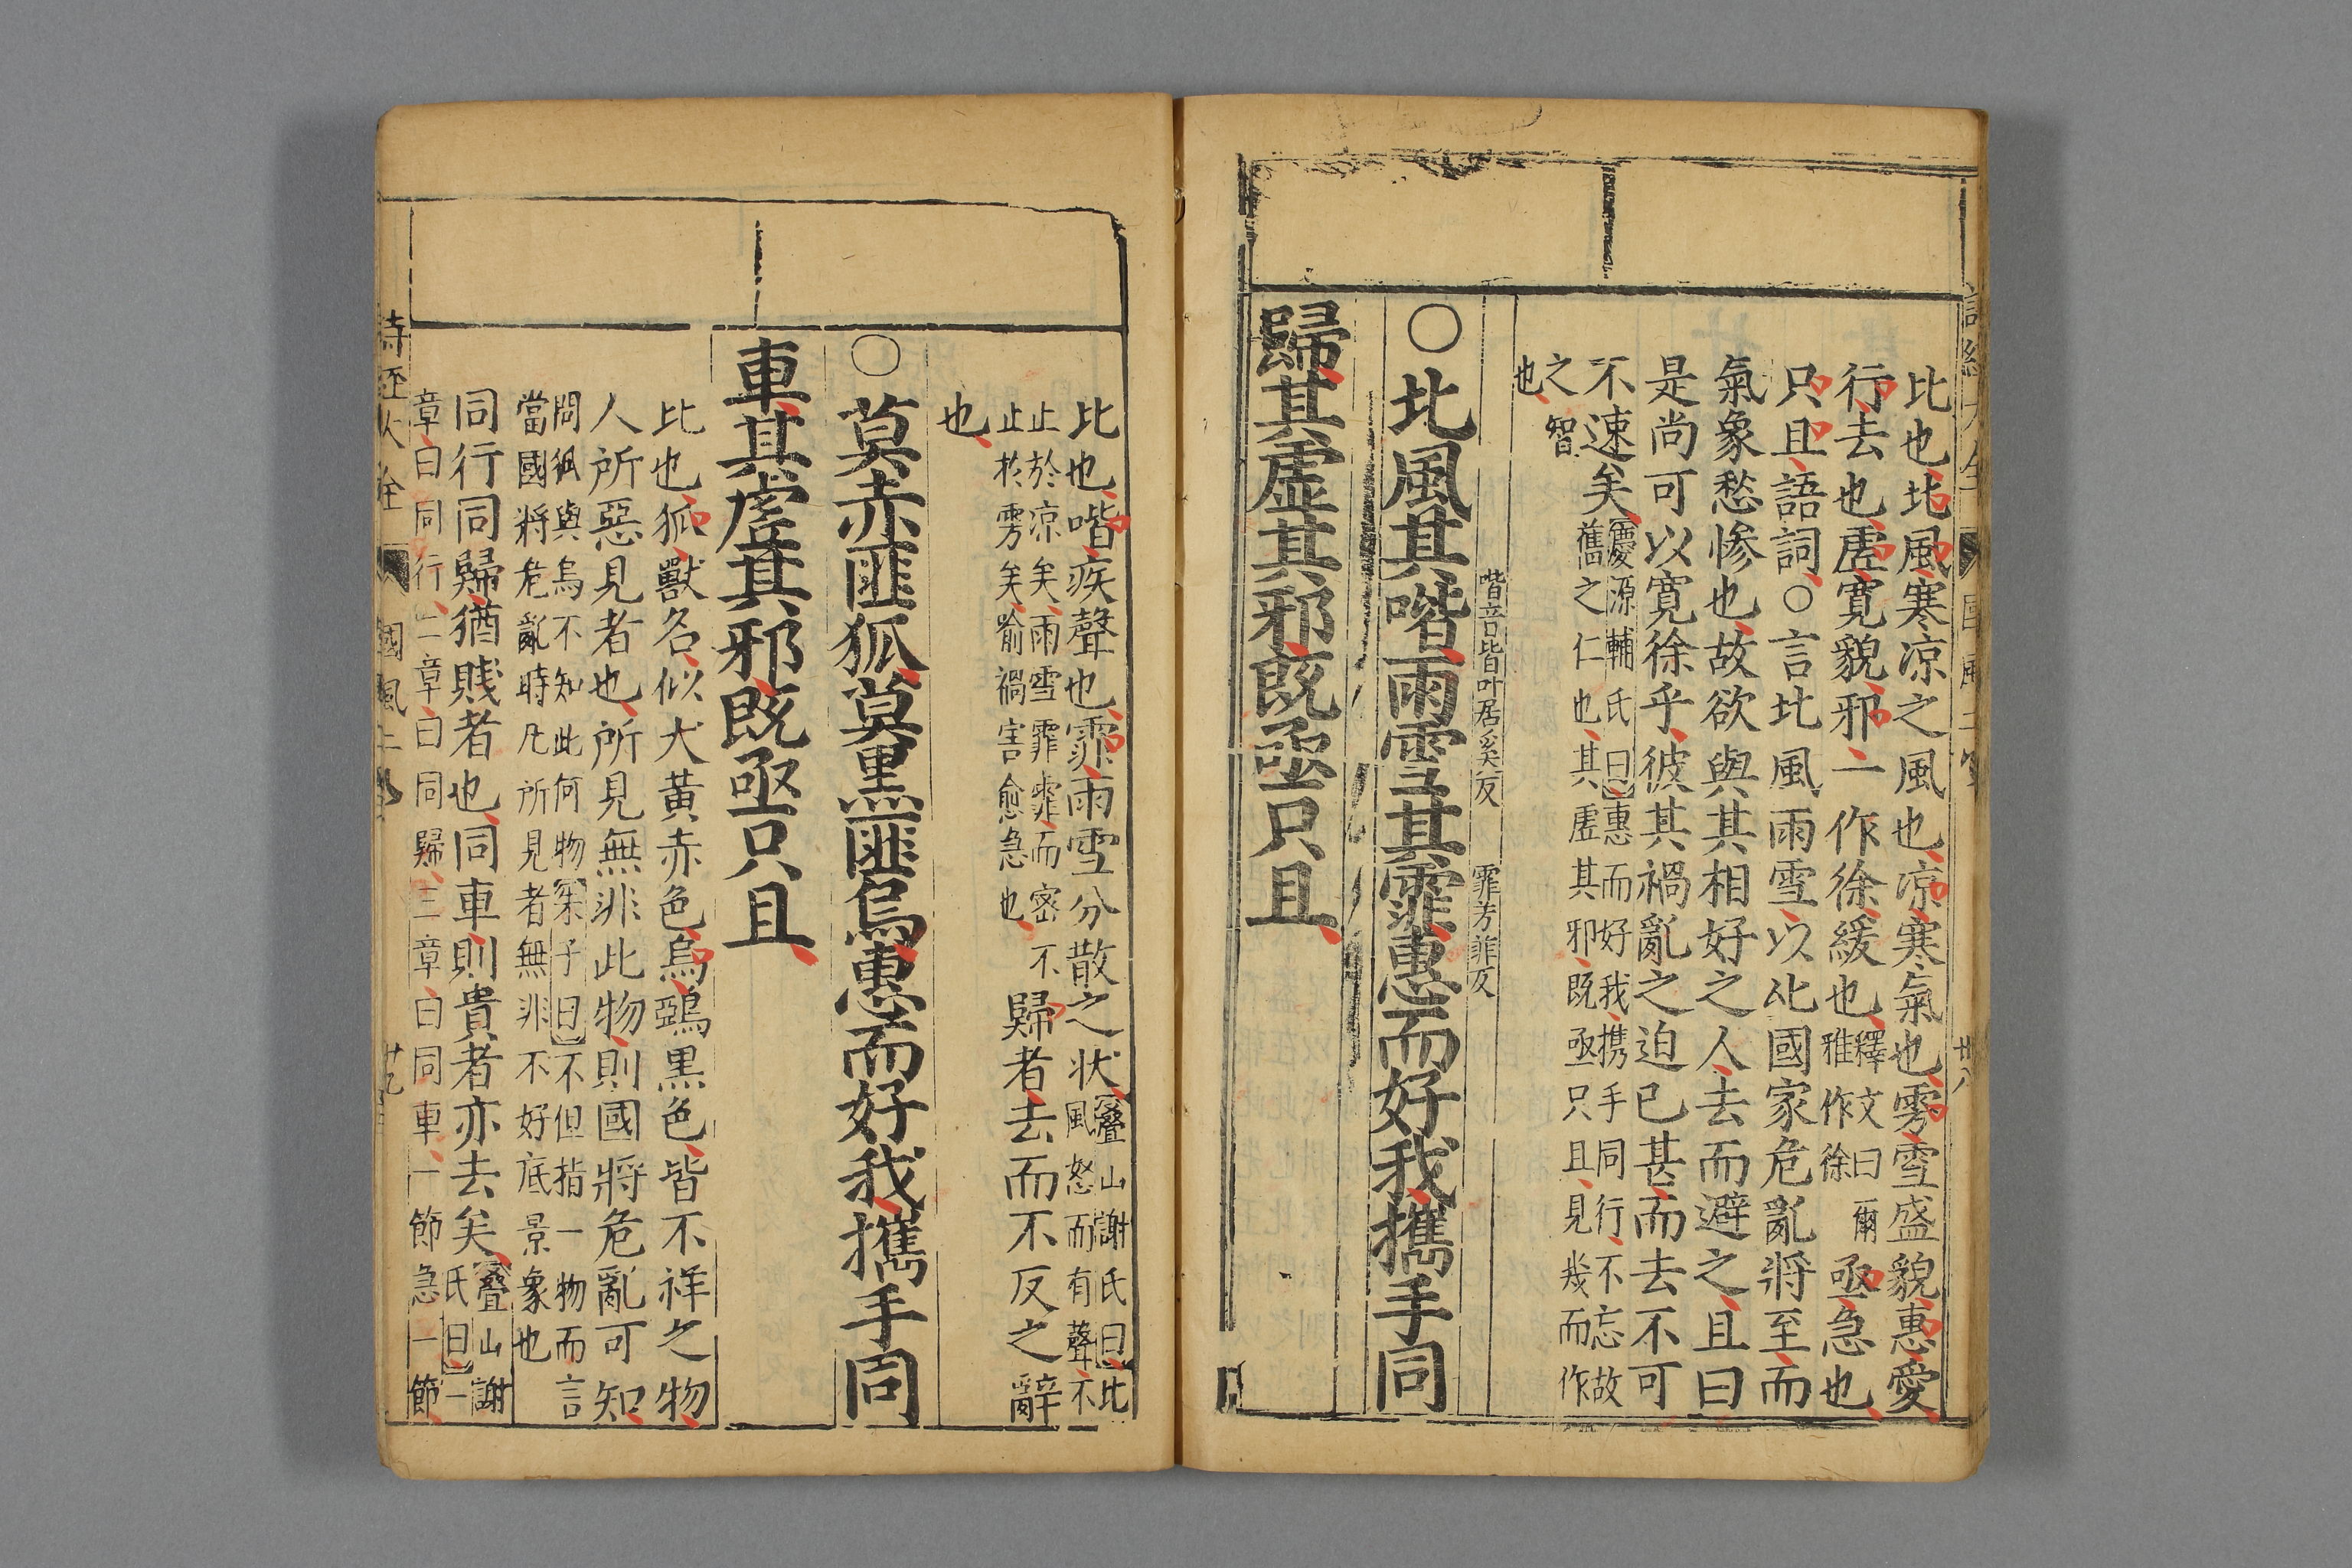 比也北風寒凉之風也凉寒氣也雱雪盛貌惠愛
行去也虗寛貌邪一作徐緩也釋文曰爾
雅作徐
亟急也
只且語詞○言北風雨雪以比國家危亂將至而
氣象愁慘也故欲與其相好之人去而避之且曰
是尚可以寛徐乎彼其禍亂之迫已甚而去不可
不速矣慶源輔氏曰惠而好我携手同行不忘故
舊之仁也其虗其邪既亟只且見幾而作
之智
也
○北風其喈雨雪其霏惠而好我攜手同
喈音皆叶居奚反
霏芳菲反
歸其虛其邪既亟只且
比也喈疾聲也霏雨雪分散之状疊山謝氏曰北
風怒而有聲不
止於凉矣雨雪霏霏而密不
止於雱矣喻禍害愈急也
歸者去而不反之辭
也
○莫赤匪狐莫黒匪烏惠而好我攜手同
車其虗其邪既亟只且
比也狐獸名似犬黃赤色烏鵶黒色皆不祥之物
人所惡見者也所見無非此物則國將危亂可知
問狐與烏不知此何物朱子曰不但指一物而言
當國將危亂時凡所見者無非不好底景象也
同行同歸猶賤者也同車則貴者亦去矣疊山謝
氏曰一
章曰同行二章曰同歸三章曰同車一節急一節
國風二
廿九